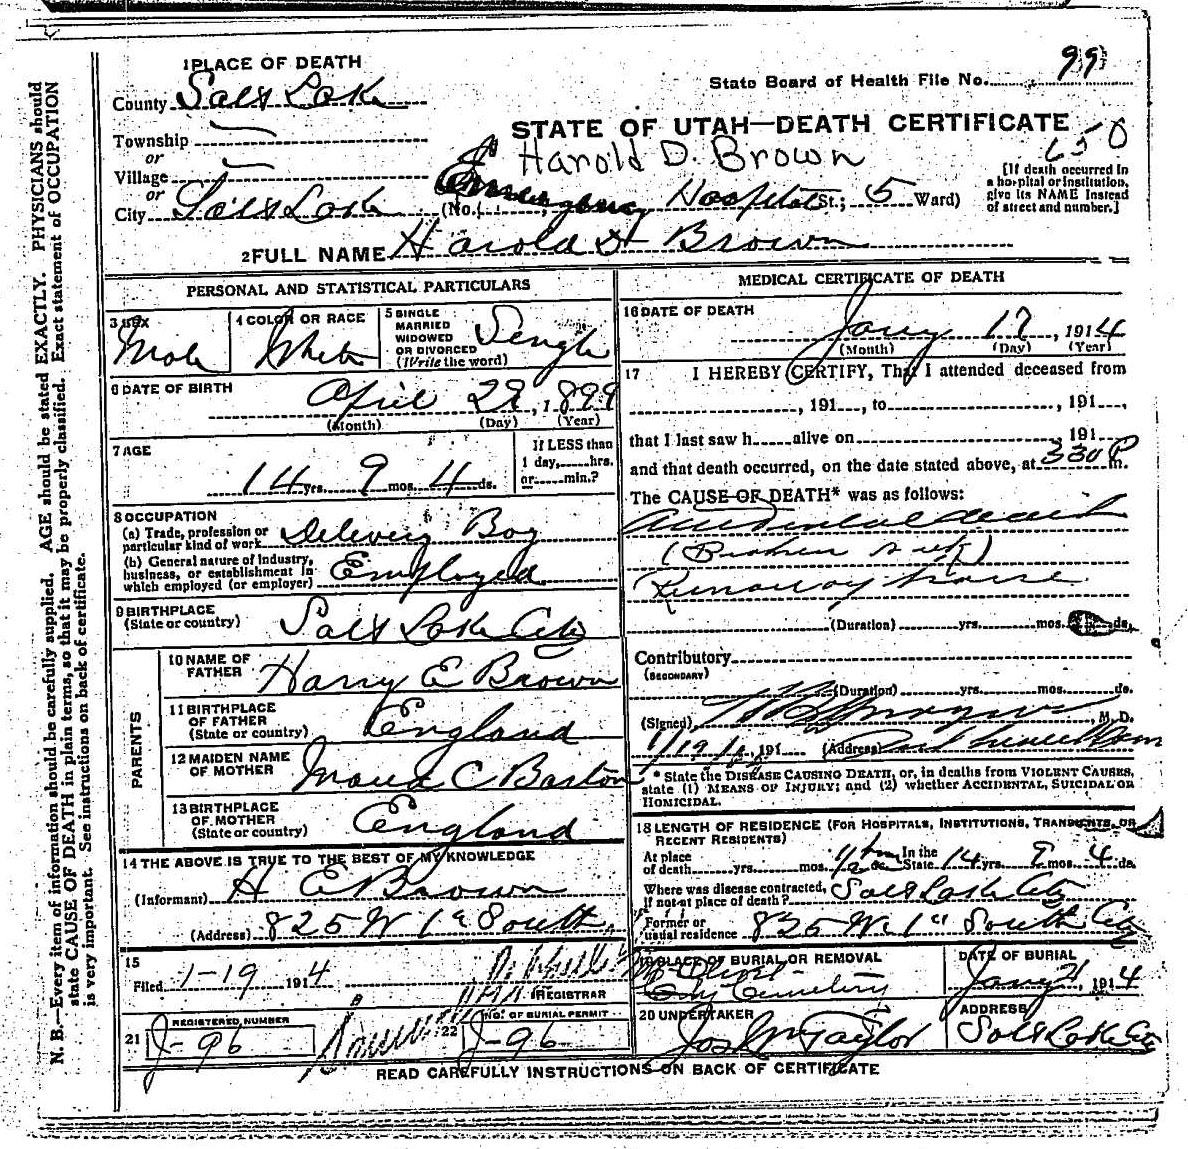 1 PLACE OF DEATH
State Board of Health File No. 99
County Salt Lake
STATE OF UTAH—DEATH CERTIFICATE
Township
or
Village
or
650
Harold D. Brown
[If death occurred in
a hospital or institution,
give its NAME instead
of street and number.]
City Salt Lake (No. Emergency Hospital St.; 5 Ward)
2 FULL NAME Harold D Brown
PERSONAL AND STATISTICAL PARTICULARS
3 SEX Male
4 COLOR OR RACE White
5 SINGLE
MARRIED
WIDOWED
OR DIVORCED
(Write the word) Single
6 DATE OF BIRTH
April 22, 1899
(Month) (Day) (Year)
7 AGE
14 yrs. 9 mos. 4 ds.
If LESS than
1 day, hrs.
or min.?
8 OCCUPATION
(a) Trade, profession or
particular kind of work Delivery Boy
(b) General nature of industry,
business, or establishment in
which employed (or employer) Employed
9 BIRTHPLACE
(State or country) Salt Lake City
PARENTS
10 NAME OF
FATHER Harry E Brown
11 BIRTHPLACE
OF FATHER
(State or country) England
12 MAIDEN NAME
OF MOTHER C Barton
13 BIRTHPLACE
OF MOTHER
(State or country) England
14 THE ABOVE IS TRUE TO THE BEST OF MY KNOWLEDGE
(Informant) H E Brown
(Address) 825 W 1st South
15
Filed 1-19 1914
REGISTRAR
21 REGISTERED NUMBER
J-96
22 NO. OF BURIAL PERMIT
J-96
MEDICAL CERTIFICATE OF DEATH
16 DATE OF DEATH
Jany 17, 1914
(Month) (Day) (Year)
17 I HEREBY CERTIFY, That I attended deceased from
, 191 , to , 191 ,
that I last saw h alive on , 191
and that death occurred, on the date stated above, at 330 P m.
The CAUSE OF DEATH* was as follows:
Accidental death
(Broken neck)
Runaway horse
(Duration) yrs. mos. ds.
Contributory
(SECONDARY)
(Duration) yrs. mos. ds.
(Signed) , M. D.
1/19/14, 191 (Address)
* State the DISEASE CAUSING DEATH, or, in deaths from VIOLENT CAUSES,
state (1) MEANS OF INJURY; and (2) whether ACCIDENTAL, SUICIDAL OR
HOMICIDAL.
18 LENGTH OF RESIDENCE (FOR HOSPITALS, INSTITUTIONS, TRANSIENTS, OR
RECENT RESIDENTS)
At place
of death yrs. mos. In the
State 14 yrs. mos. 4 ds.
Where was disease contracted,
If not at place of death? Salt Lake City
Former or
usual residence 825 W. 1st South City
19 PLACE OF BURIAL OR REMOVAL
Mt Olivet
City Cemetery
DATE OF BURIAL
Jany 21, 1914
20 UNDERTAKER
Jos Wm Taylor
ADDRESS
Salt Lake City
READ CAREFULLY INSTRUCTIONS ON BACK OF CERTIFICATE
N. B.—Every item of information should be carefully supplied. AGE should be stated EXACTLY. PHYSICIANS should
state CAUSE OF DEATH in plain terms, so that it may be properly classified. Exact statement of OCCUPATION
is very important. See instructions on back of certificate.